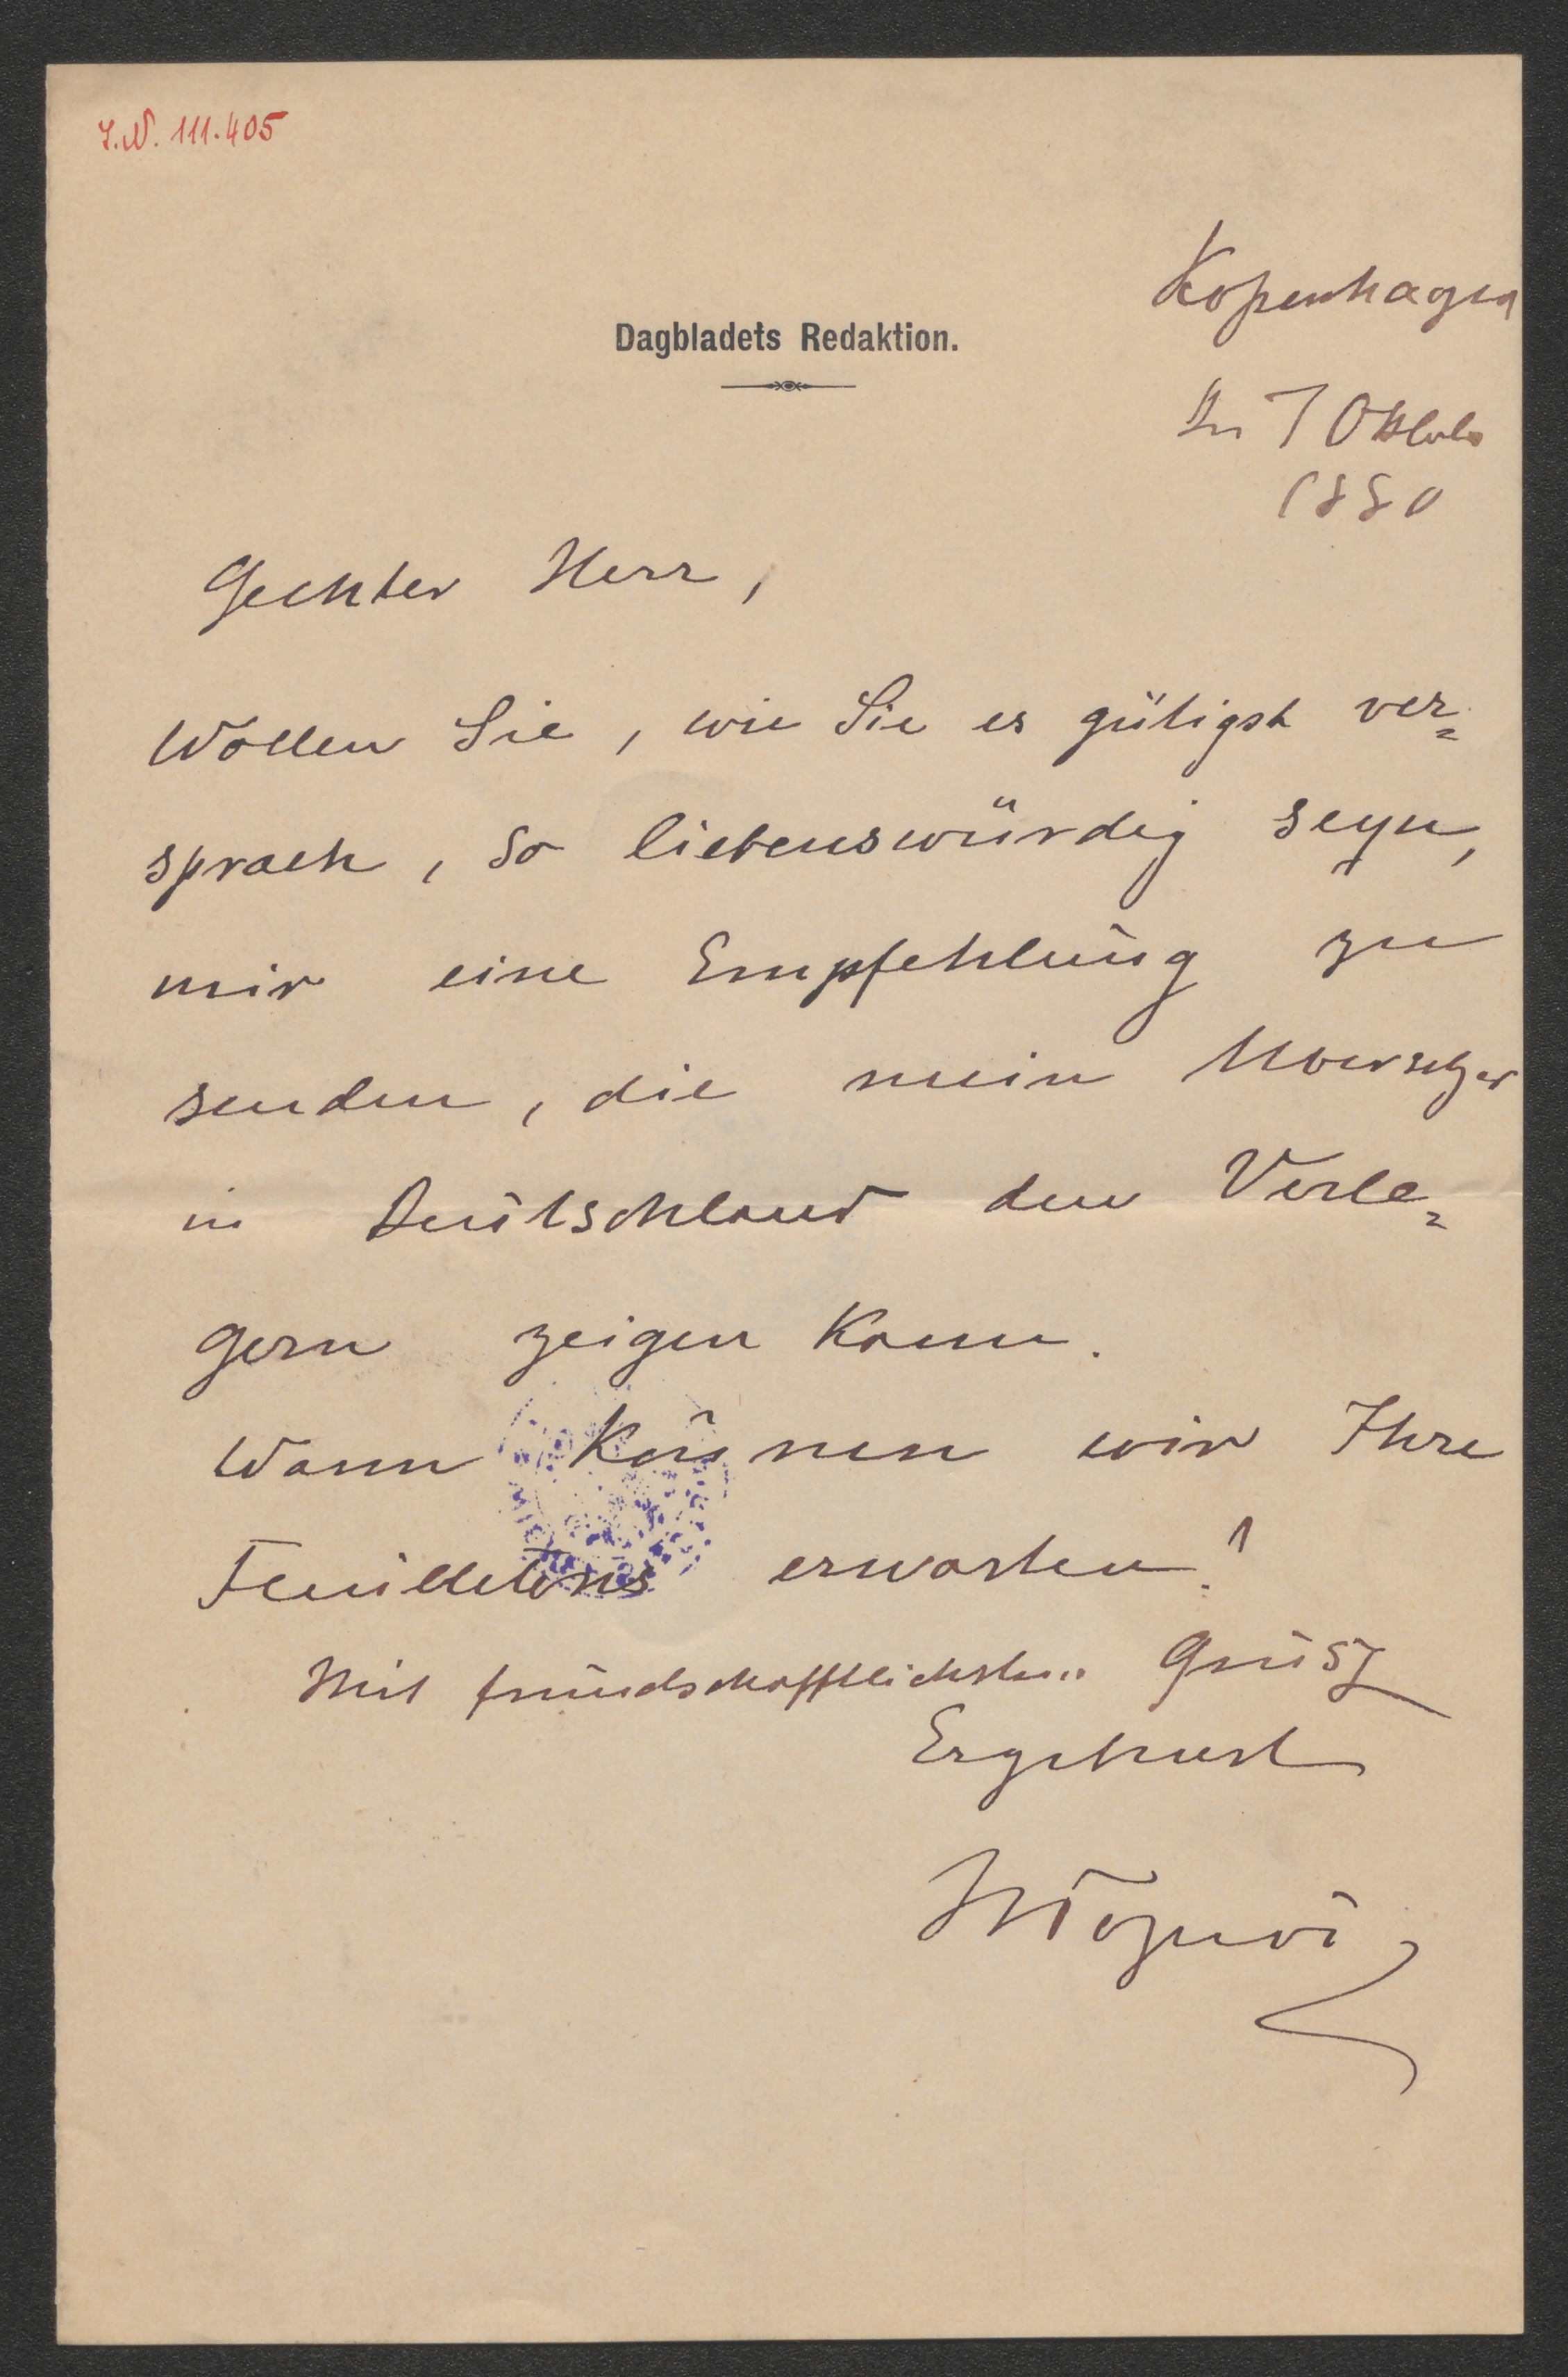 J.N. 111.405
Kopenhagen
Dagbladets Redaktion.
7 Oktober
1880
Geehter Herr,
Wollen Sie, wie Sie es gütigst ver=
sprach, so liebenswürdig seyn,
mir eine Empfehlung zu
senden, die mein
in Deutschland den Verle=
gern zeigen kann.
Wann können wir Ihre
Feuilletons erwarten?
Mit freundschafftlichsten Grusz
Ergebenst